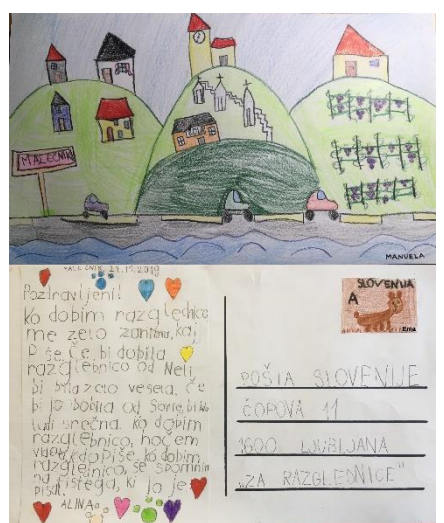 MALEČNIK
MANUELA
MALEČNIK, 21.11.2019
Pozdravljeni!
Ko dobim razglednico
me zelo zanima, kaj
piše. Če bi dobila
razglednico od Neli,
bi bila zelo vesela, če
bi jo dobila od Sonje, bi bila
tudi srečna. Ko dobim
razglednico, hočem
videti kdo piše. Ko dobim
razglednico, se spomnim
na tistega, ki jo je
pisal.
ALINA
SLOVENIJA
A
Ema
POŠTA SLOVENIJE
ČOPOVA 11
1600 LJUBLJANA
"ZA RAZGLEDNICE"